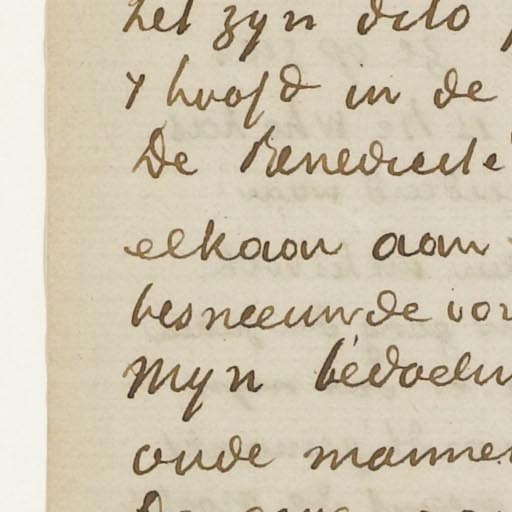 het zyn dito
't hoofd in de
De Benedicte
elkaar aan
besneeuwde vor
Myn bedoelin
oude mannen
De